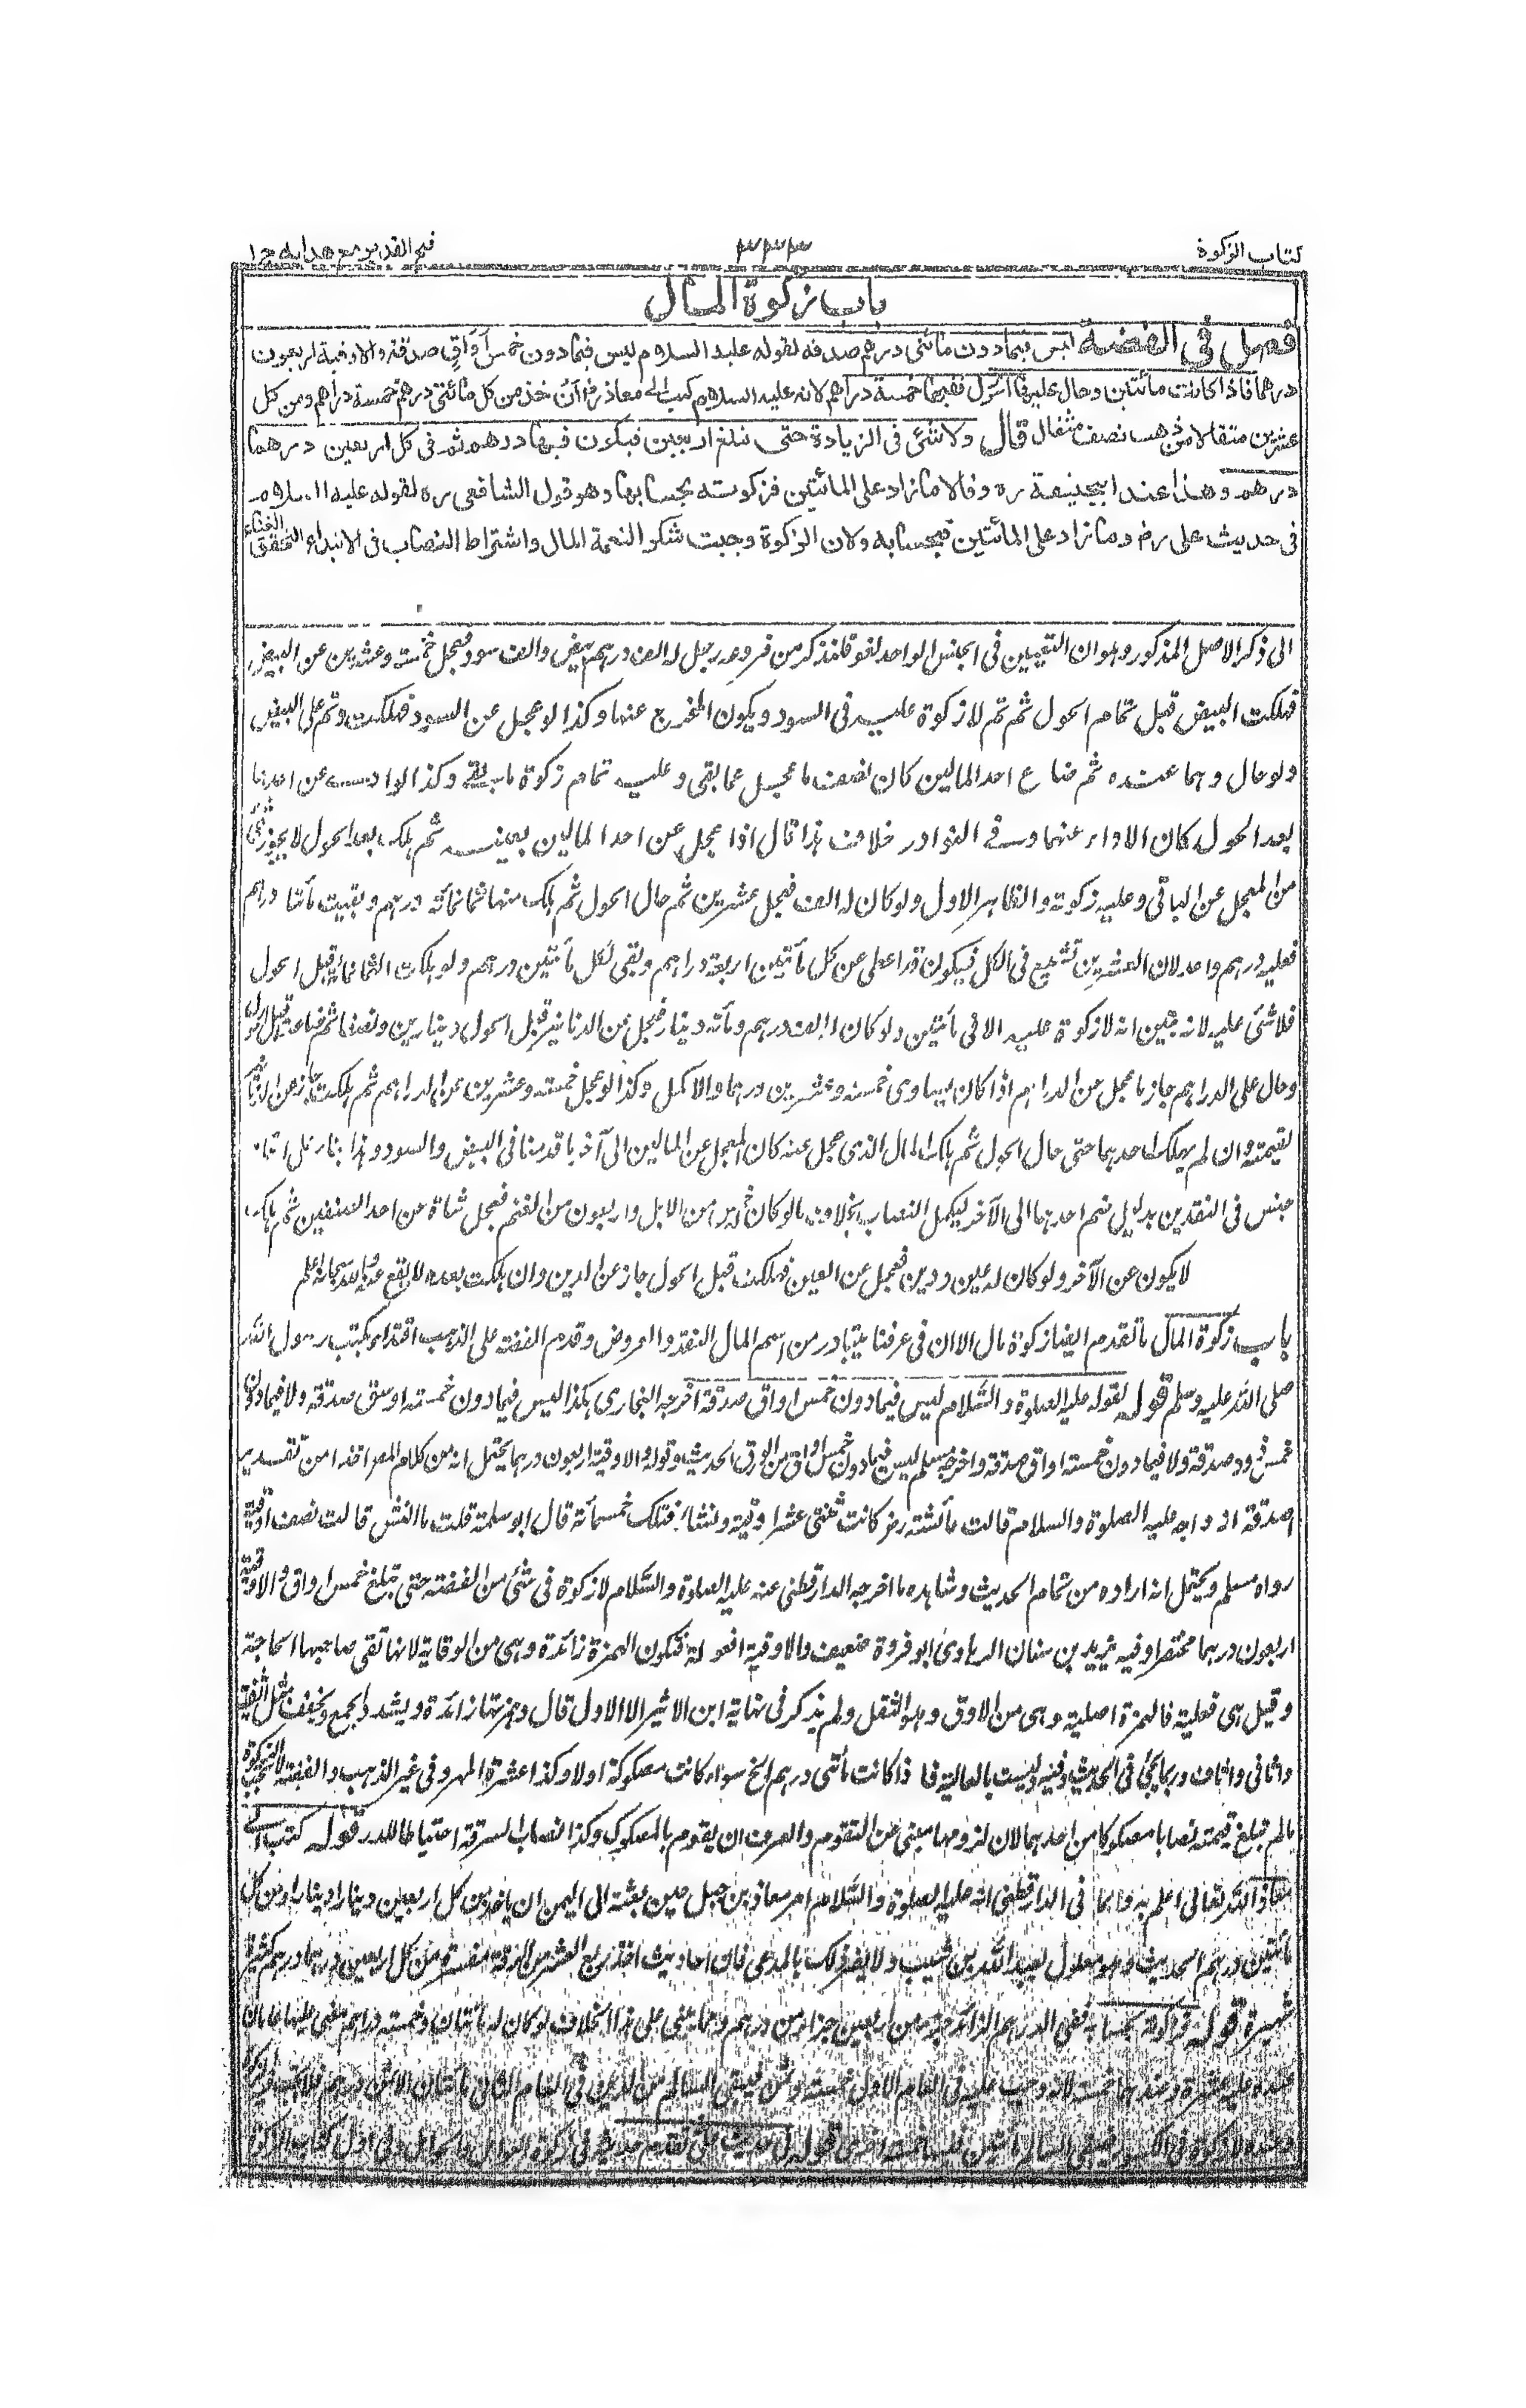 كتاب الزكوة
٣٢٣
فتح القدير مع هدايه ج١
باب زكوة المال
فصل في الفضة ليس فيما دون مائتى درهم صدقة لقوله عليه السلام ليس فيما دون خمس أواق صدقة والاوقية اربعون
درهما فاذا كانت مائتين وحال عليها الحول ففيها خمسة دراهم لانه عليه السلام كتب الى معاذ رض أن خذ من كل مائتى درهم خمسة دراهم ومن كل
عشرين مثقالا من ذهب نصف مثقال قال ولا شئ فى الزيادة حتى تبلغ اربعين فيكون فيها درهم ثم فى كل اربعين درهما
درهم وهذا عند ابيحنيفة ره وقالا ما زاد على المائتين فزكوته بحسابها وهو قول الشافعى ره لقوله عليه السلام
فى حديث على رض وما زاد على المائتين فبحسابه ولان الزكوة وجبت شكر النعمة المال واشتراط النصاب فى الابتداء لتحقق الغناء
الى ذكر الاصل المذكور وهو ان التعيين فى الجنس الواحد لغو فلنذكر من فروعه رجل له الف درهم بيض والف سود فعجل خمسة وعشرين عن البيض
فهلكت البيض قبل تمام الحول ثم تم لا زكوة عليه فى السود ويكون المخرج عنها وكذا لو عجل عن السود فهلكت وتم على البيض
ولو حال وهما عنده ثم ضاع احد المالين كان نصف ما عجل عما بقى وعليه تمام زكوة ما بقى وكذا لو ادى عن احدهما
بعد الحول كان الاداء عنهما وفى النوادر خلاف هذا قال اذا عجل عن احد المالين بعينه ثم هلك بعد الحول لا يجوز شئ
من المعجل عن الباقى وعليه زكوته والظاهر الاول ولو كان له الف فعجل عشرين ثم حال الحول ثم هلك منها ثمانمائة درهم وبقيت مائتا درهم
فعليه درهم واحد لان العشرين تشيع فى الكل فيكون قد اعطى عن كل مائتين اربعة دراهم وبقى لكل مائتين درهم ولو هلكت الثمانمائة قبل الحول
فلا شئ عليه لانه تبين انه لا زكوة عليه الا فى مائتين ولو كان له الف درهم ومائة دينار فعجل عن الدنانير قبل الحول دينارين ونصفا ثم ضاعت قبل الحول
وحال على الدراهم جاز ما عجل عن الدراهم اذا كان يساوى خمسة وعشرين درهما والا كمل وكذا لو عجل خمسة وعشرين عن الدراهم ثم هلكت جاز عن الدنانير
بقيمته وان لم يهلك احدهما حتى حال الحول ثم هلك المال الذى عجل عنه كان المعجل عن المالين الى آخر ما قدمنا فى البيض والسود وهذا بناء على اتحاد
جنس فى النقدين بدليل ضم احدهما الى الآخر ليكمل النصاب بخلاف ما لو كان له خمس من الابل واربعون من الغنم فعجل شاة عن احد الصنفين ثم هلك
لا يكون عن الآخر ولو كان له عين ودين فعجل عن العين فهلكت قبل الحول جاز عن الدين وان هلكت بعده لا يقع عنه والله سبحانه اعلم
باب زكوة المال ما تقدم ايضا زكوة مال الا ان فى عرفنا يتبادر من اسم المال النقد والعروض وقدم الفضة على الذهب اقتداء بكتب رسول الله
صلى الله عليه وسلم قوله لقوله عليه الصلوة والسلام ليس فيما دون خمس اواق صدقة اخرجه البخارى هكذا ليس فيما دون خمسة اوسق صدقة ولا فيما دون
خمس ذود صدقة ولا فيما دون خمسة اواق صدقة واخرجه مسلم ليس فيما دون خمس اواق من الورق الحديث وقوله والاوقية اربعون درهما يحتمل انه من كلام المص اخذا من تقدير
اصدقة ازواجه عليه الصلوة والسلام قالت عائشة رض كانت ثنتى عشر اوقية ونشا فتلك خمسمائة قال ابو سلمة قلت ما النش قالت نصف اوقية
رواه مسلم ويحتمل انه اراده من تمام الحديث وشاهده ما اخرجه الدارقطنى عنه عليه الصلوة والسلام لا زكوة فى شئ من الفضة حتى تبلغ خمس اواق والاوقية
اربعون درهما مختصرا وفيه يزيد بن سنان الرهاوى ابو فروة ضعيف والاوقية افعولة فتكون الهمزة زائدة وهى من الوقاية لانها تقى صاحبها الحاجة
وقيل هى فعلية فالهمزة اصلية وهى من الاوق وهو الثقل ولم يذكر فى نهاية ابن الاثير الا الاول قال وهمزتها زائدة ويشدد الجمع ويخفف مثل اثفية
واثافى واثاف وربما يجئ فى الحديث وقية وليست بالعالية فاذا كانت مأتى درهم الخ سواء كانت مصكوكة اولا وكذا عشرة المهر وفى غير الذهب والفضة لا تجب الزكوة
ما لم تبلغ قيمته نصابا مصكوكا من احدهما لان لزومها مبنى عن التقوم والعرف ان يقوم بالمصكوك وكذا نصاب السرقة احتياطا للدرء قوله كتب الى
معاذ الله تعالى اعلم به وانما فى الدارقطنى انه عليه الصلوة والسلام امر معاذ بن جبل حين بعثه الى اليمن ان ياخذ من كل اربعين دينارا دينارا ومن كل
مائتين درهم الحديث وهو معلول بعبد الله بن شبيب ولا يضر ذلك بالمدعى فان احاديث اخذ ربع العشر من الرقة مفسرة من كل اربعين درهما درهم كثيرة
شهيرة قوله فزكوته بحسابها ففى الدرهم الزائد جزء من اربعين جزاء من درهم وما يبنى على هذا الخلاف لو كان له مائتان وخمسة دراهم مضى عليها عامان
عنده عليه عشرة وعندهما خمسة لانه وجب عليه فى العام الاول خمسة وثمن فبقى السالم من الدين فى العام الثانى مائتان الا ثمن درهم فلا تجب